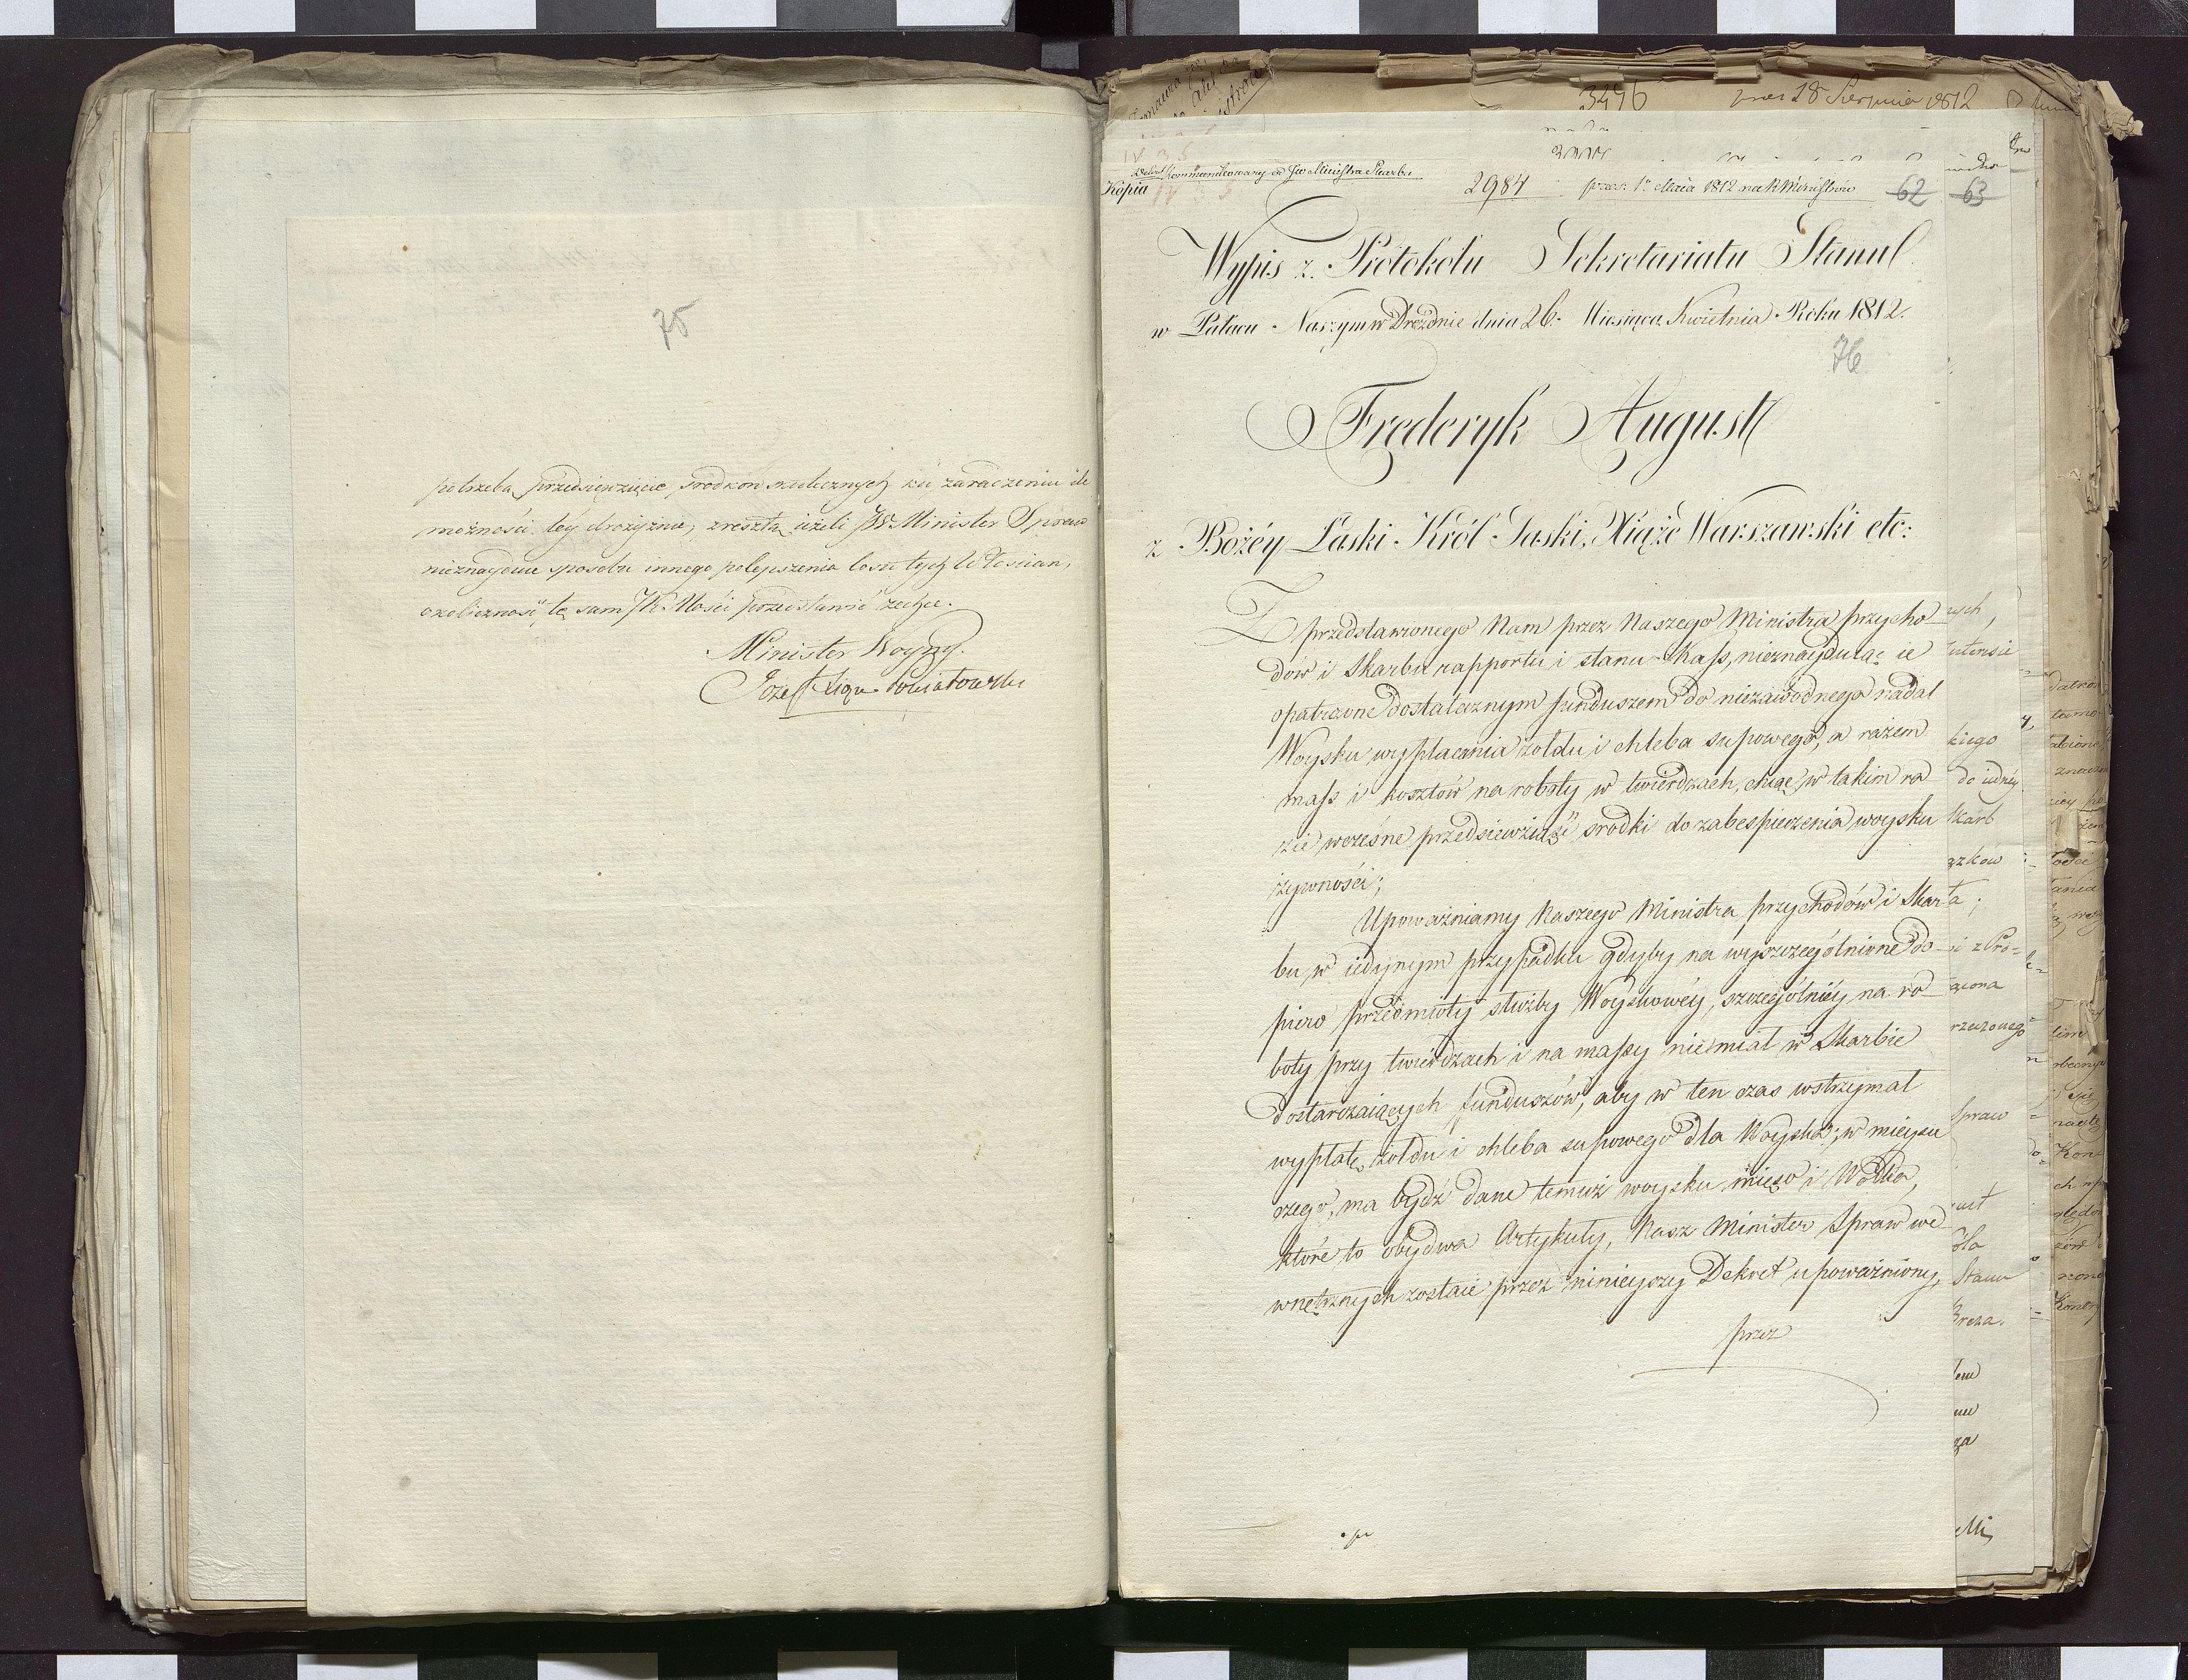 75
potrzebą przedsięwzięcie srodkow skutecznych ku zaradzeniu ile
możności téy drożyznie, zresztą ieżeli JW Minister Spraw
nieznaydzie sposobu innego polepszenia losu tych Włościan,
okoliczność tę sam JK Mości przedstawić zechce.
Minister Woyny.
Józef Xiąże Poniatowski
3496 18 Sierpnia 1812
Kommunikowany Ministra Skarbu
Kopia
2984 1o Maia 1812 na R Ministrów 62 63
Wypis z Protokołu Sekretariatu Stanu
w Pałacu Naszym w Dreznie dnia 26. Miesiąca Kwietnia Roku 1812.
76
Frederyk August
z Bożéy Łaski Król Saski, Xiąże Warszawski etc:
Z przedstawionego Nam przez Naszego Ministra przycho-
dów i Skarbu rapportu i stanu Kass, nieznayduiąc ie
opatrzone dostatecznym funduszem do niezawodnego nadal
Woysku wypłacania żołdu i chleba supowego, a razem
mass i kosztów na roboty w twierdzach, chcąc w takim ra-
zie wcześne przedsiewziąść srodki do zabespieczenia woysku
żywności;
Upoważniamy Naszego Ministra przychodów i Skar-
bu w iedynym przypadku gdyby na wyszczególnione do-
piero przedmioty służby Woyskowéy, szczególniéy na ro-
boty przy twierdzach i na massy niemiał w Skarbie
dostarczaiących funduszów, aby w ten czas wstrzymał
wypłatę żołdu i chleba supowego dla Woyska; w mieyscu
czego, ma bydź dane temuż woysku mięso i Wódka,
które to obydwa Artykuły, Nasz Minister Spraw we-
wnętrznych zostaie przez ninieyszy Dekret upoważniony,
przez